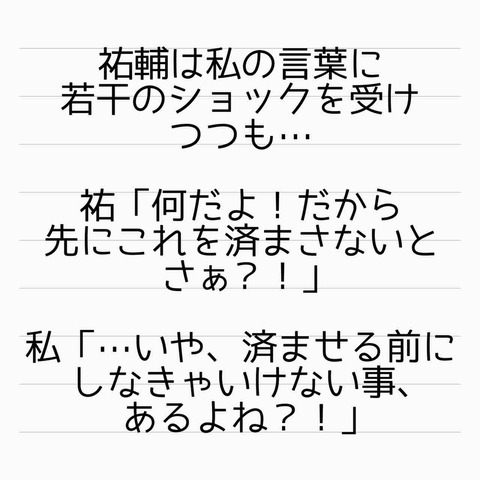 祐輔は私の言葉に
若干のショックを受け
つつも…
祐「何だよ！だから
先にこれを済まさないと
さぁ？！」
私「…いや、済ませる前に
しなきゃいけない事、
あるよね？！」